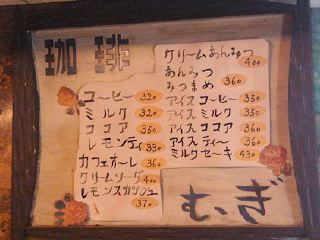 珈琲
コーヒー 320
ミルク 320
ココア 350
レモンティ 330
カフェオーレ 360
クリームソーダ 400
レモンスカッシュ 370
クリームあんみつ 400
あんみつ
みつまめ 360
アイスコーヒー 350
アイスミルク 350
アイスココア 360
アイスティー 360
ミルクセーキ 430
むぎ